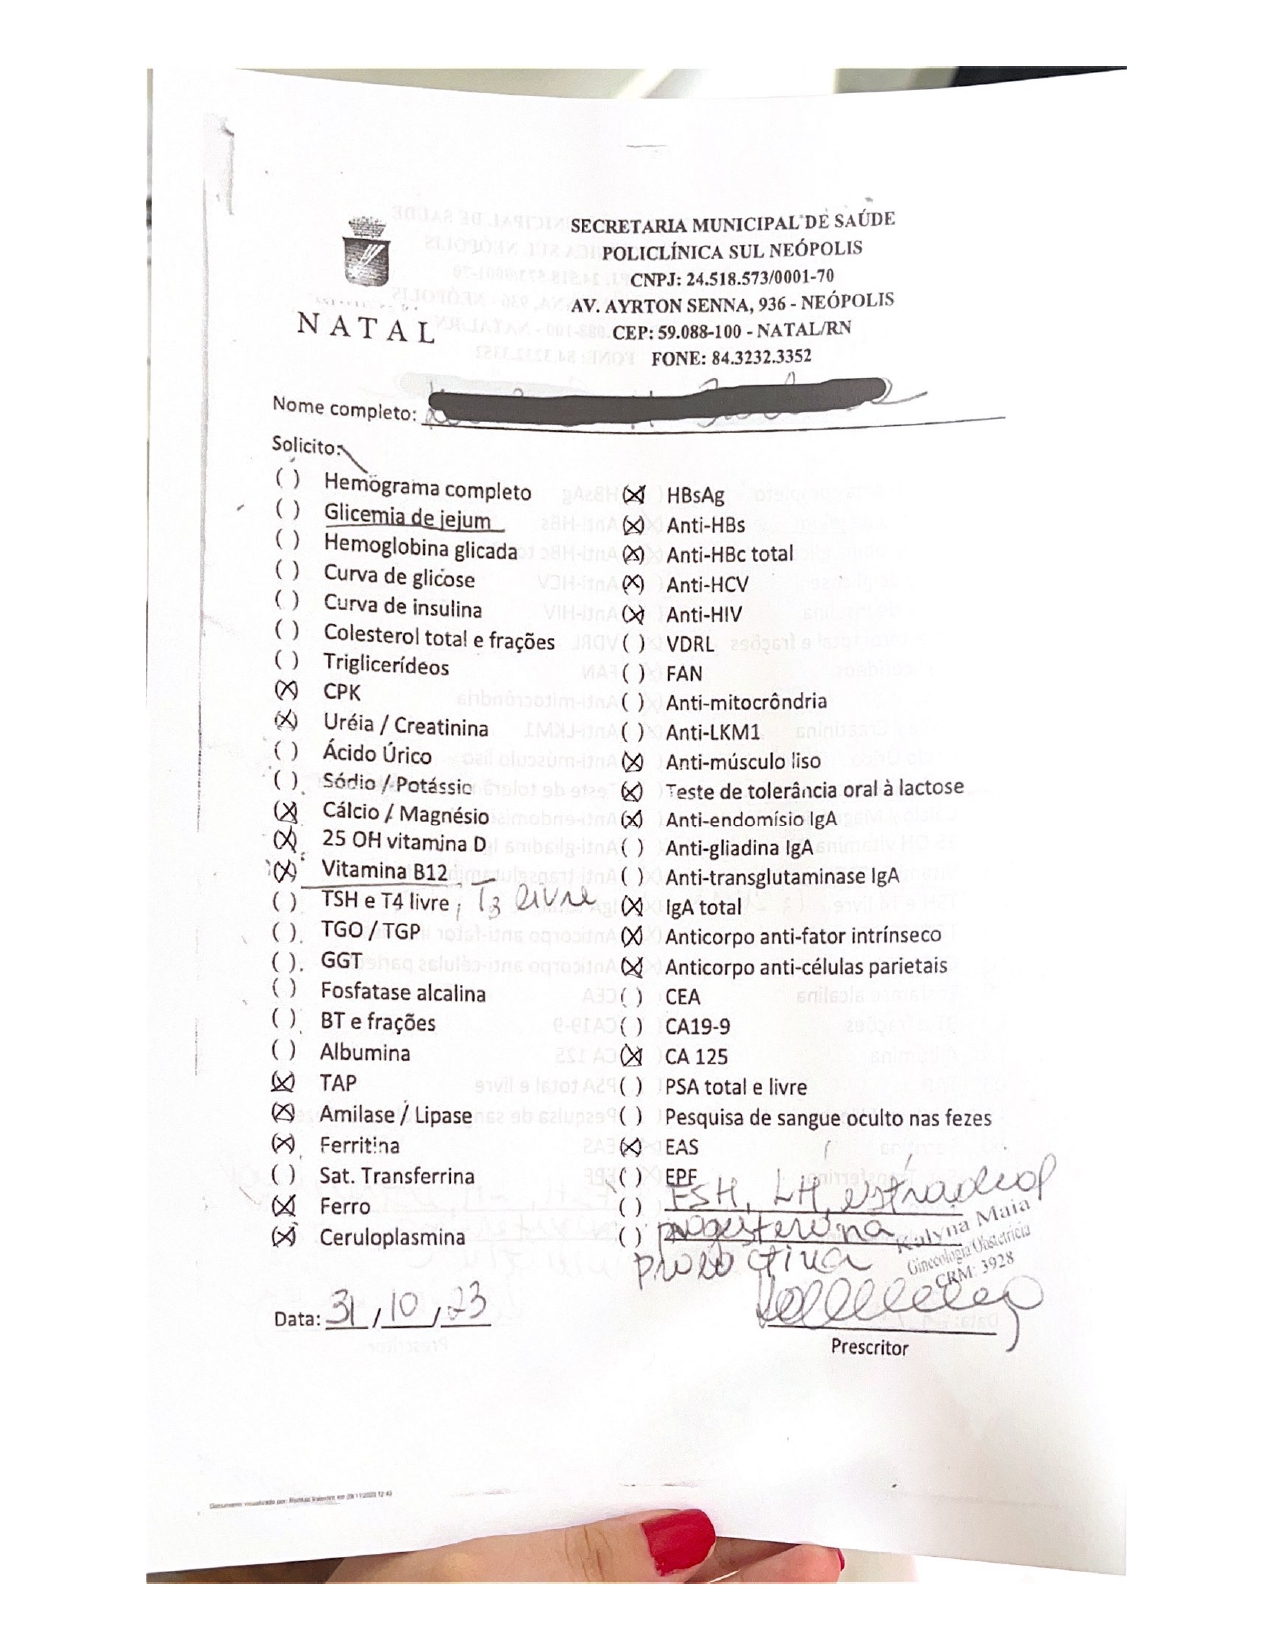 SECRETARIA MUNICIPAL DE SAÚDE
POLICLÍNICA SUL NEÓPOLIS
CNPJ: 24.518.573/0001-70
AV. AYRTON SENNA, 936 - NEÓPOLIS
CEP: 59.088-100 - NATAL/RN
FONE: 84.3232.3352
NATAL
Nome completo:
Solicito:
( ) Hemograma completo
( ) Glicemia de jejum
( ) Hemoglobina glicada
( ) Curva de glicose
( ) Curva de insulina
( ) Colesterol total e frações
( ) Triglicerídeos
(X) CPK
(X) Uréia / Creatinina
( ) Ácido Úrico
( ) Sódio / Potássio
(X) Cálcio / Magnésio
(X) 25 OH vitamina D
(X) Vitamina B12
( ) TSH e T4 livre, T3 livre
( ) TGO / TGP
( ) GGT
( ) Fosfatase alcalina
( ) BT e frações
( ) Albumina
(X) TAP
(X) Amilase / Lipase
(X) Ferritina
( ) Sat. Transferrina
(X) Ferro
(X) Ceruloplasmina
(X) HBsAg
(X) Anti-HBs
(X) Anti-HBc total
(X) Anti-HCV
(X) Anti-HIV
( ) VDRL
( ) FAN
( ) Anti-mitocrôndria
( ) Anti-LKM1
(X) Anti-músculo liso
(X) Teste de tolerância oral à lactose
(X) Anti-endomísio IgA
( ) Anti-gliadina IgA
( ) Anti-transglutaminase IgA
(X) IgA total
(X) Anticorpo anti-fator intrínseco
(X) Anticorpo anti-células parietais
( ) CEA
( ) CA19-9
(X) CA 125
( ) PSA total e livre
( ) Pesquisa de sangue oculto nas fezes
(X) EAS
( ) EPF
( ) FSH, LH, estradiol
( ) progesterona
prolactina
Kalyna Maia
Ginecologia Obstetrícia
CRM: 3928
Data: 31/10/23
Prescritor